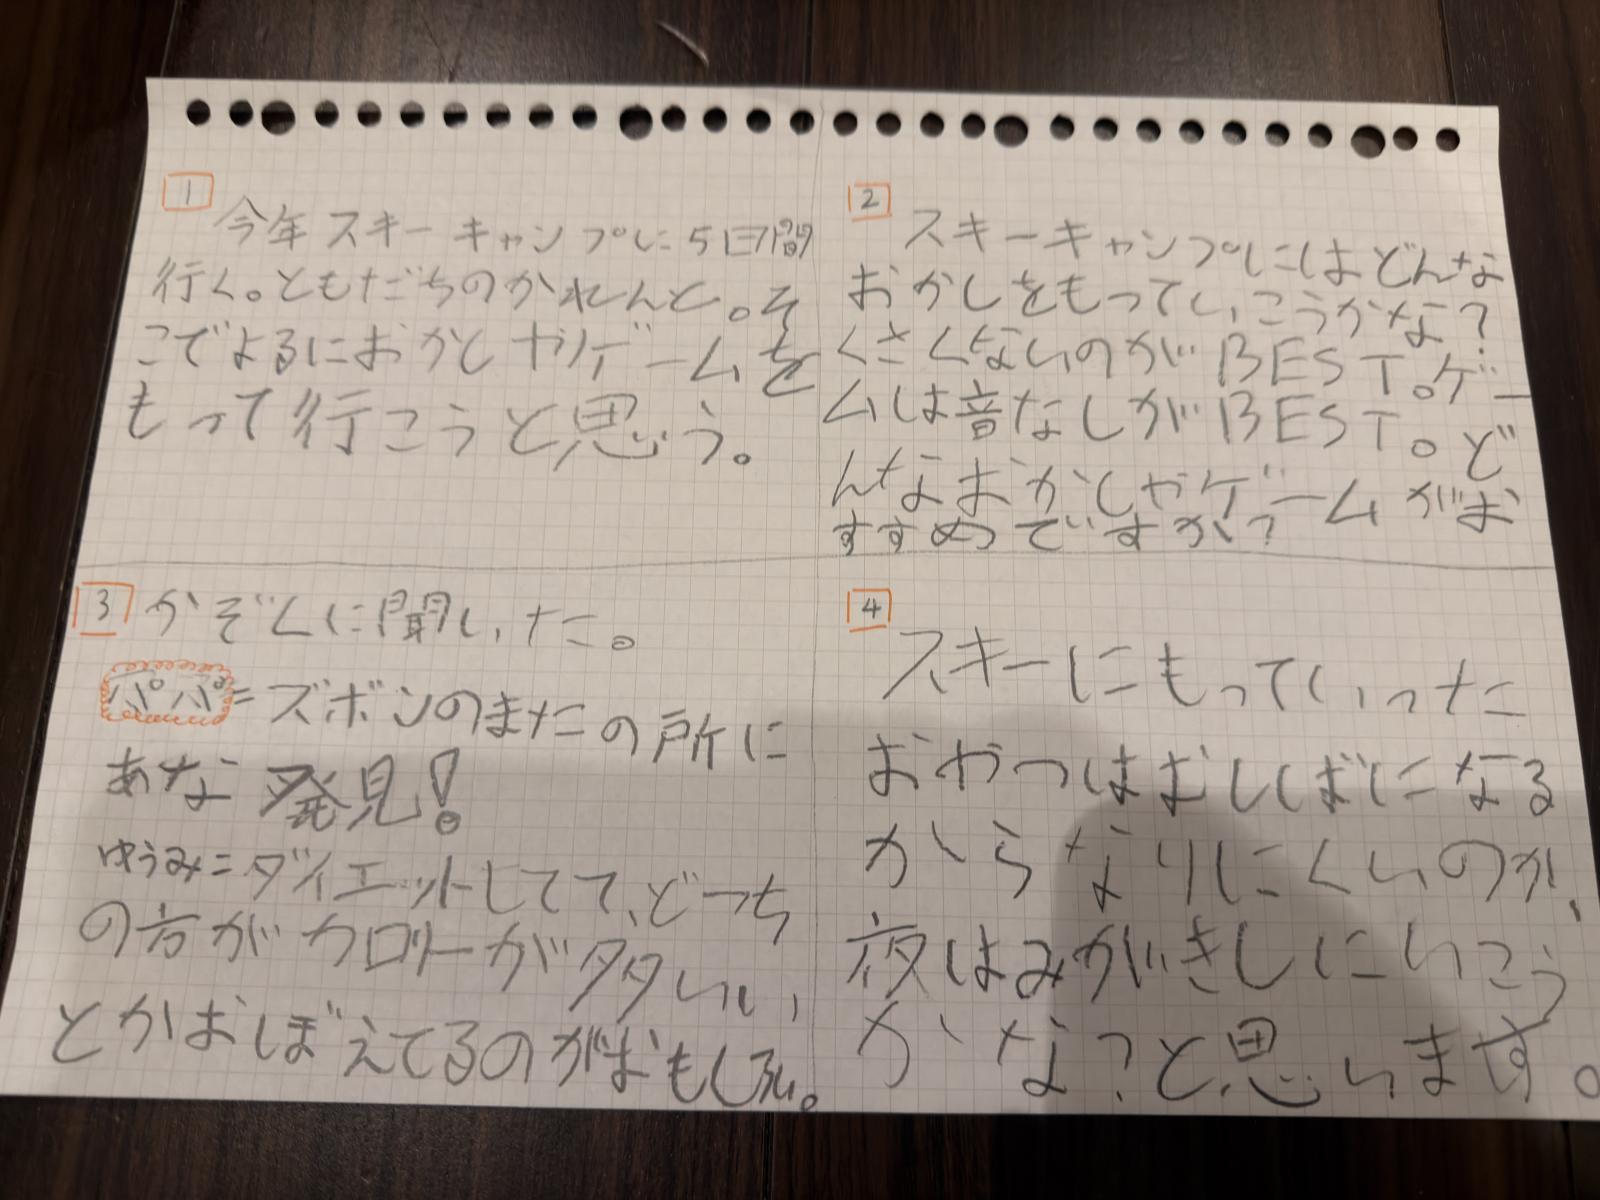 1
今年スキーキャンプに5日間
行く。ともだちのかれんと。そ
こでよるにおかしやゲームを
もって行こうと思う。
2
スキーキャンプにはどんな
おかしをもっていこうかな?
くさくないのがBEST。ゲー
ムは音なしがBEST。ど
んなおかしやゲームがお
すすめですか?
3 かぞくに聞いた。
パパ=ズボンのまたの所に
あな発見!
ゆうみ=ダイエットしてて、どっち
の方がカロリーが多いい、
とかおぼえてるのがおもしろい。
4
スキーにもっていった
おやつはむしばになる
から なりにくいのか、
夜はみがきしにいこう
かな?と思います。